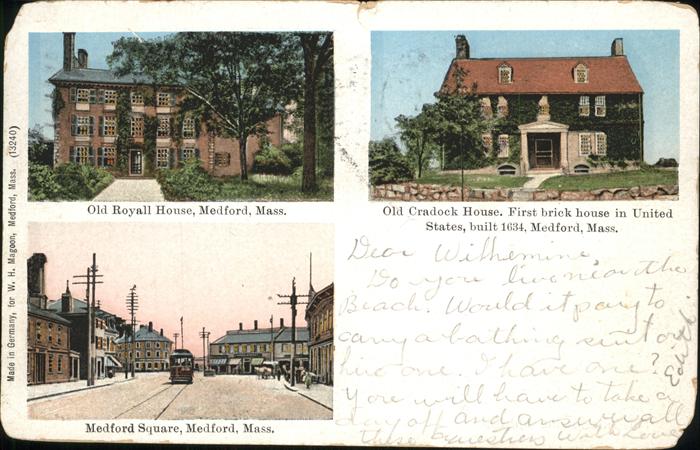 Old Royall House, Medford, Mass.
Old Cradock House. First brick house in United
States, built 1634, Medford, Mass.
Made in Germany, for W. H. Magoon, Medford, Mass. (13240)
Medford Square, Medford, Mass.
Dear Wilhemine,
Do you live near the
Beach. Would it pay to
carry a bathing suit or
hire one. I have one?
You will have to take a
day off and answer all
these questions With Love
Edith